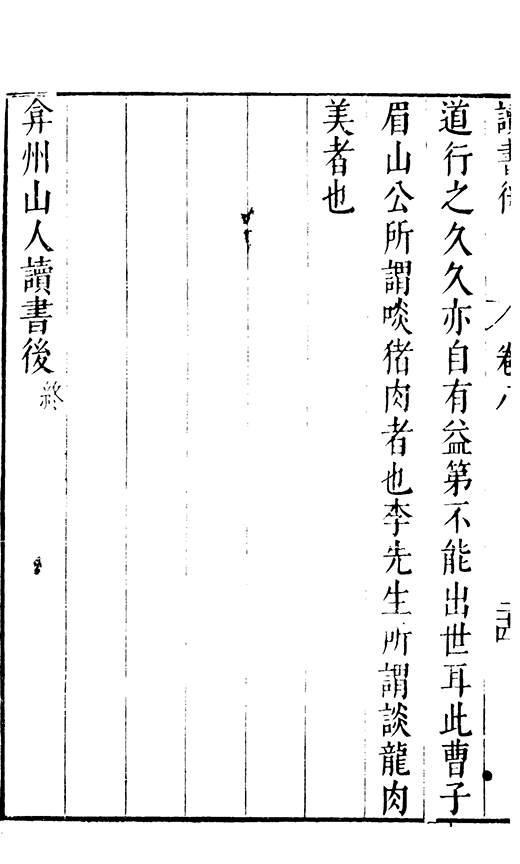 讀書後 卷八
道行之久久亦自有益第不能出世耳此曹子
眉山公所謂啖猪肉者也李先生所謂談龍肉
美者也
弇州山人讀書後終